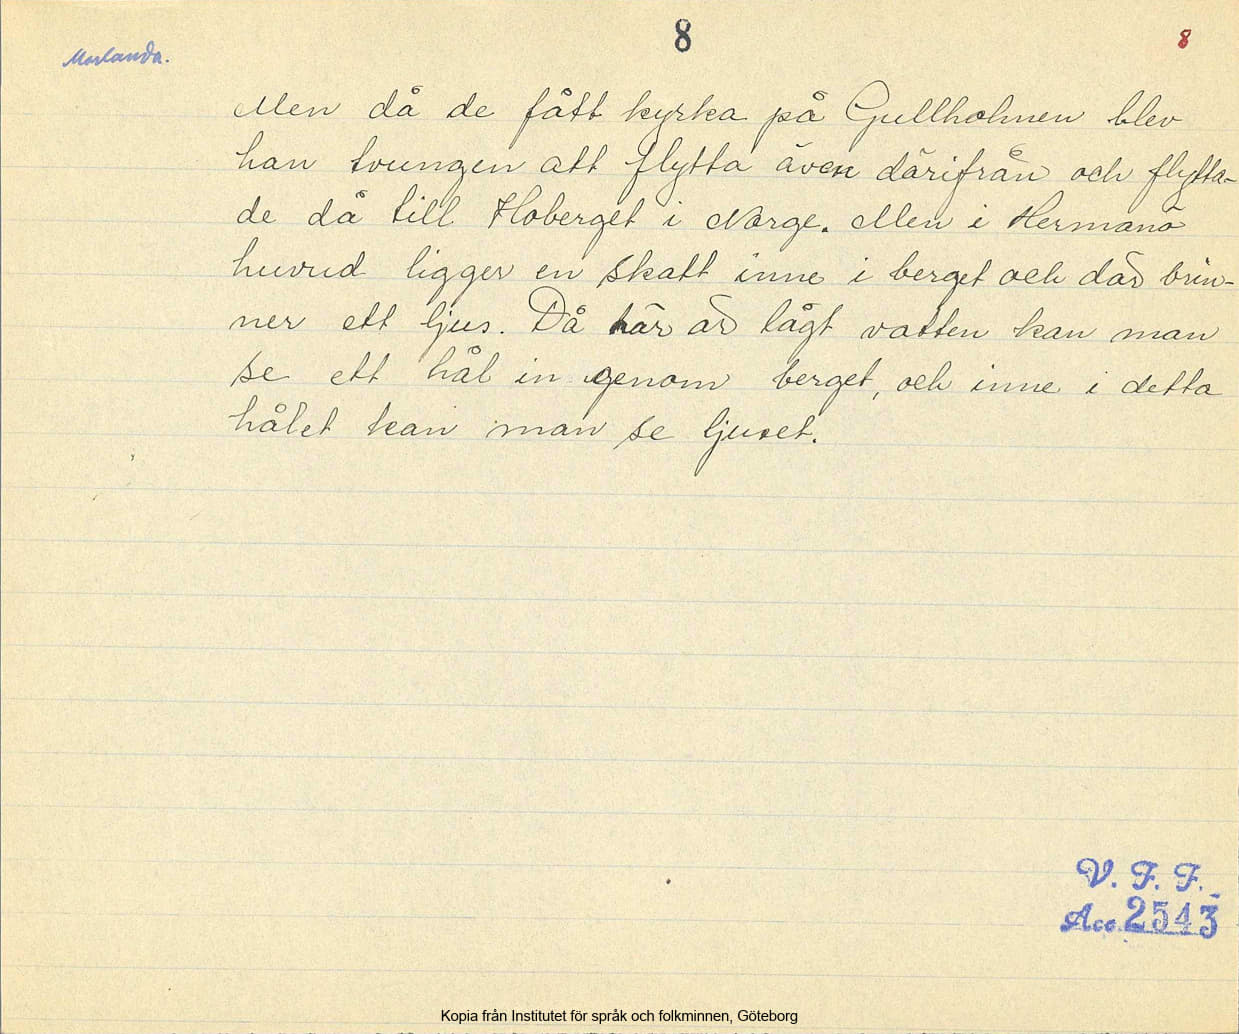 8
8
Morlanda.
Men då de fått kyrka på Gullholmen blev
han tvungen att flytta även därifrån och flytta-
de då till Hoberget i Norge. Men i Hermanö
huvud ligger en skatt inne i berget och där brin-
ner ett ljus. Då här är lågt vatten kan man
se ett hål in genom berget, och inne i detta
hålet kan man se ljuset.
V. F. F.
Acc. 2543
Kopia från Institutet för språk och folkminnen, Göteborg